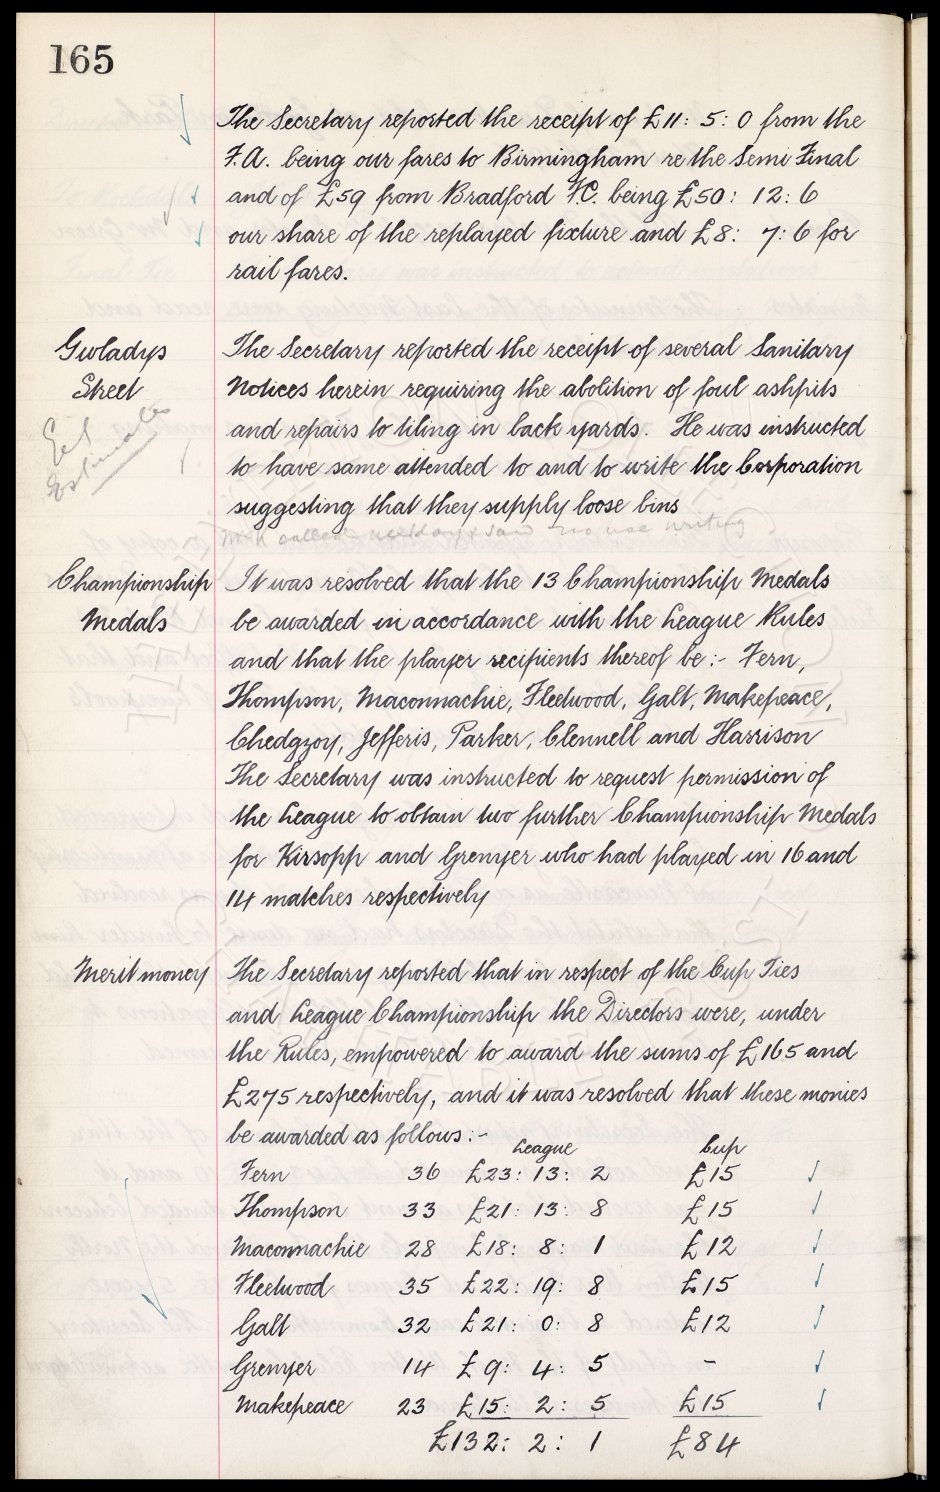 165
The Secretary reported the receipt of £11: 5: 0 from the
F.A. being our fares to Birmingham re the Semi Final
and of £59 from Bradford F.C. being £50: 12: 6
our share of the replayed fixture and £8: 7: 6 for
rail fares.
Gwladys
Street
Get
Estimates
The Secretary reported the receipt of several Sanitary
Notices herein requiring the abolition of foul ashpits
and repairs to tiling in back yards. He was instructed
to have same attended to and to write the Corporation
suggesting that they supply loose bins
called no use writing
Championship
Medals
It was resolved that the 13 Championship Medals
be awarded in accordance with the League Rules
and that the player recipients thereof be:- Fern,
Thompson, Maconnachie, Fleetwood, Galt, Makepeace,
Chedgzoy, Jefferis, Parker, Clennell and Harrison
The Secretary was instructed to request permission of
the League to obtain two further Championship Medals
for Kirsopp and Grenyer who had played in 16 and
14 matches respectively
Merit money
The Secretary reported that in respect of the Cup Ties
and League Championship the Directors were, under
the Rules, empowered to award the sums of £165 and
£275 respectively, and it was resolved that these monies
be awarded as follows:-
League Cup
Fern 36 £23: 13: 2 £15
Thompson 33 £21: 13: 8 £15
Maconnachie 28 £18: 8: 1 £12
Fleetwood 35 £22: 19: 8 £15
Galt 32 £21: 0: 8 £12
Grenyer 14 £9: 4: 5 -
Makepeace 23 £15: 2: 5 £15
£132: 2: 1 £84